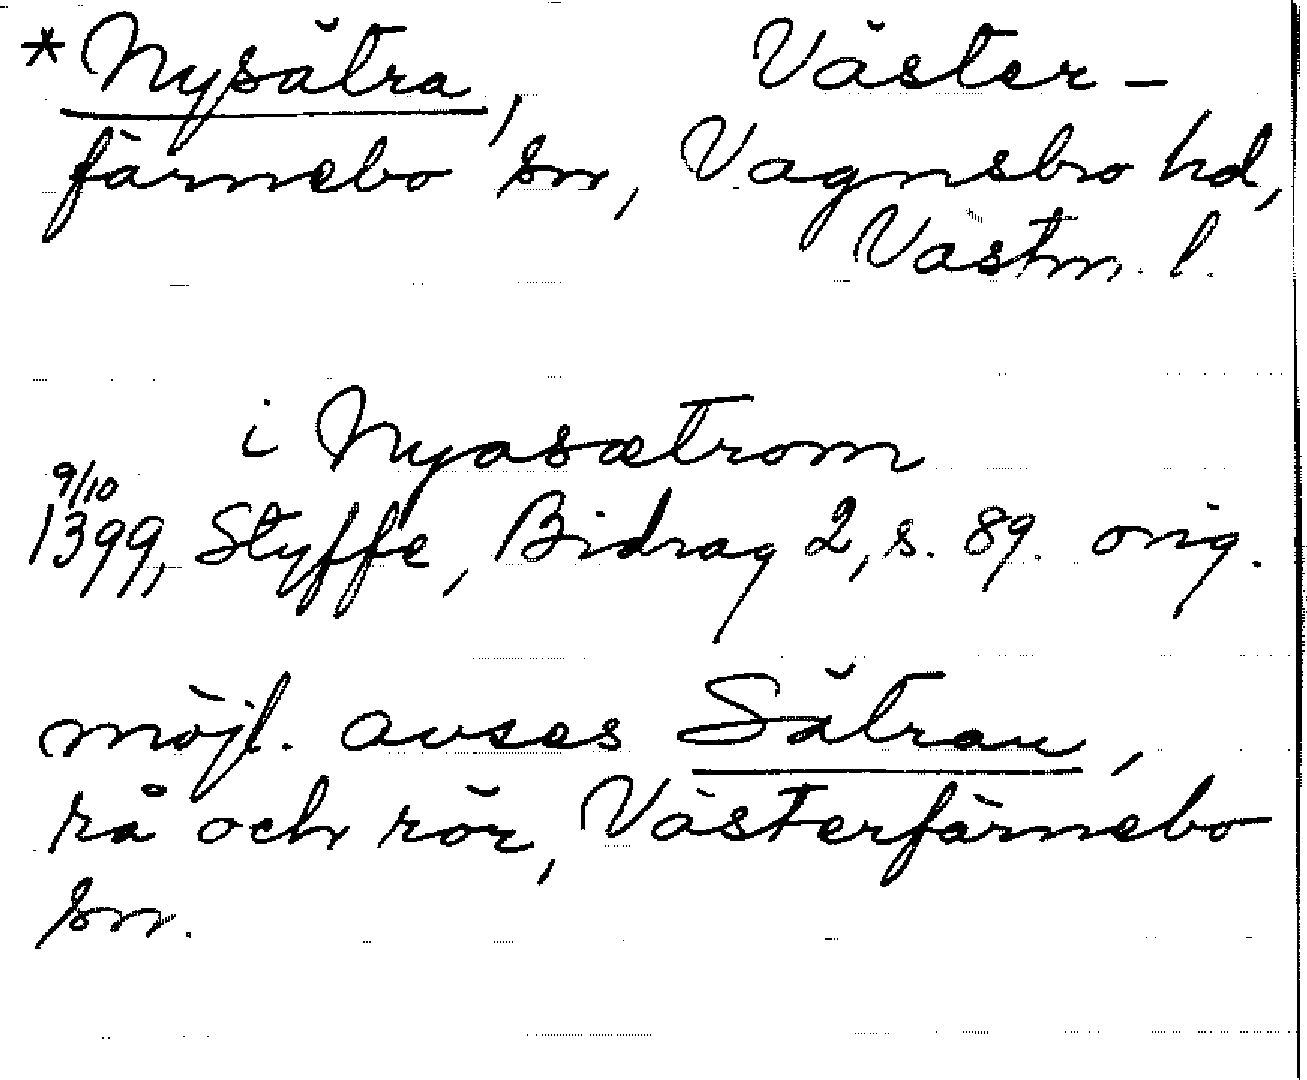 *Nysätra, Väster-
färnebo sn, Vagnsbro hd,
Västm. l.
i Nyasætrom
9/10
1399, Styffe, Bidrag 2, s. 89. orig.
möjl. avses Sätrau,
rå och rör, Västerfärnebo
sn.